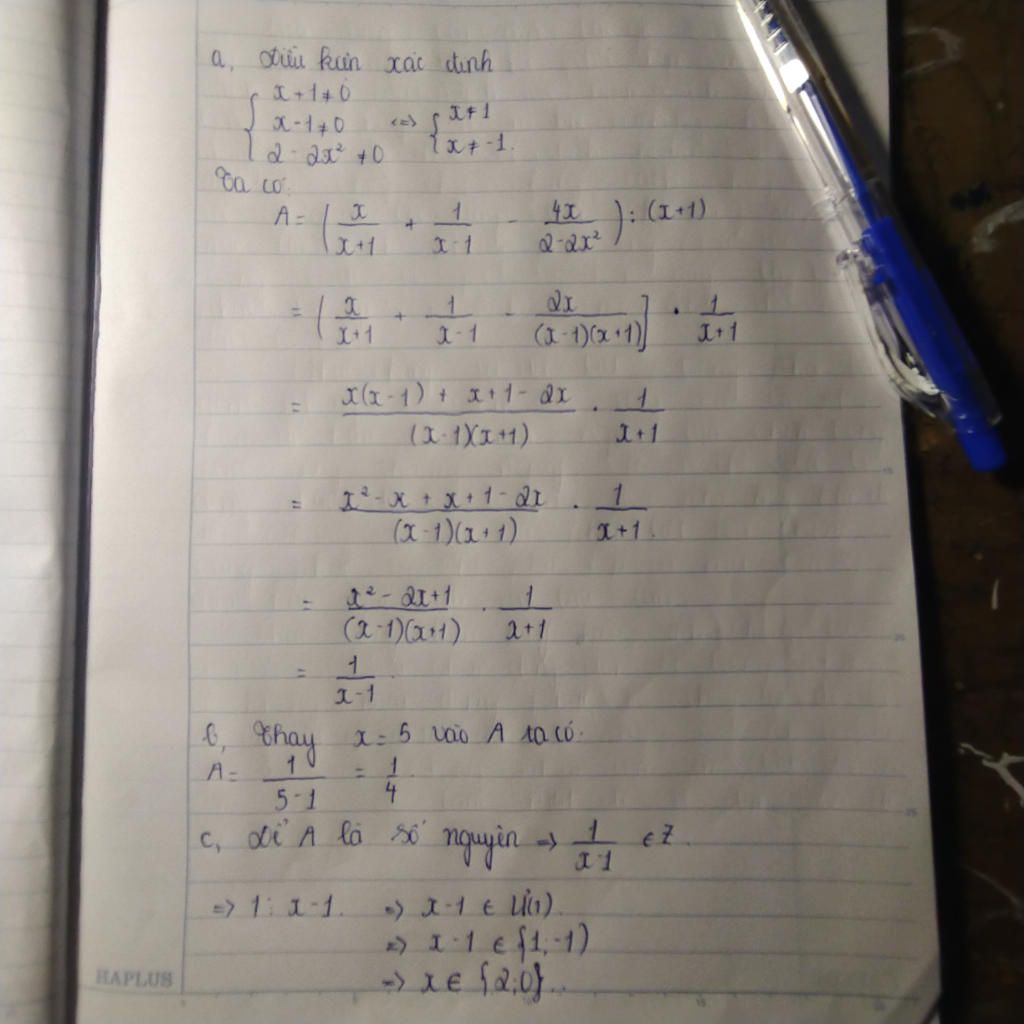 a, Điều kiện xác định
{ x+1≠0
x-1≠0 <=> { x≠1
2-2x² ≠0 x≠-1.
Ta có:
A= (x/(x+1) + 1/(x-1) - 4x/(2-2x²)) : (x+1)
= [x/(x+1) + 1/(x-1) - 2x/((x-1)(x+1))] · 1/(x+1)
= (x(x-1) + x+1-2x)/((x-1)(x+1)) · 1/(x+1)
= (x²-x+x+1-2x)/((x-1)(x+1)) · 1/(x+1).
= (x²-2x+1)/((x-1)(x+1)) · 1/(x+1)
= 1/(x-1).
b, Thay x=5 vào A ta có:
A= 1/(5-1) = 1/4.
c, Để A là số nguyên => 1/(x-1) ∈ Z.
=> 1 ⋮ x-1. => x-1 ∈ Ư(1).
=> x-1 ∈ {1;-1)
=> x∈ {2;0}..
HAPLUS